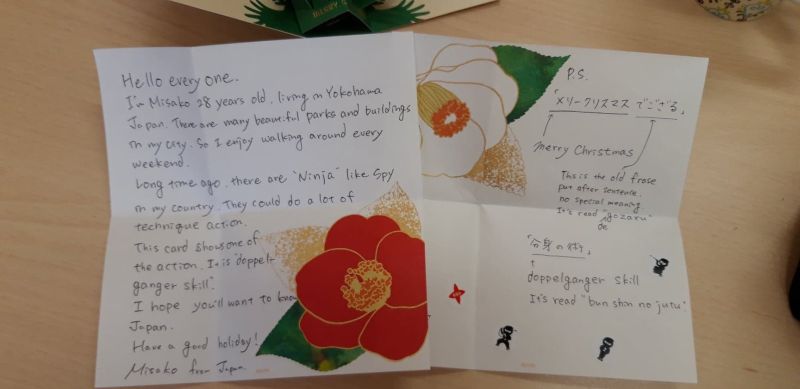 Hello every one.
I'm Misako 28 years old, living in Yokohama
Japan. There are many beautiful parks and buildings
in my city. So I enjoy walking around every
weekend.
Long time ago, there are "Ninja" like Spy
in my country. They could do a lot of
technique action.
This card shows one of
the action. It is "doppel-
ganger skill".
I hope you'll want to know
Japan.
Have a good holiday!
Misako from Japan
P.S.
「メリークリスマス でござる」
merry Christmas
This is the old frase
put after sentence.
no special meaning
It's read "gozaru"
de
「分身の術」
doppelganger skill
It's read "bun shin no jutu"